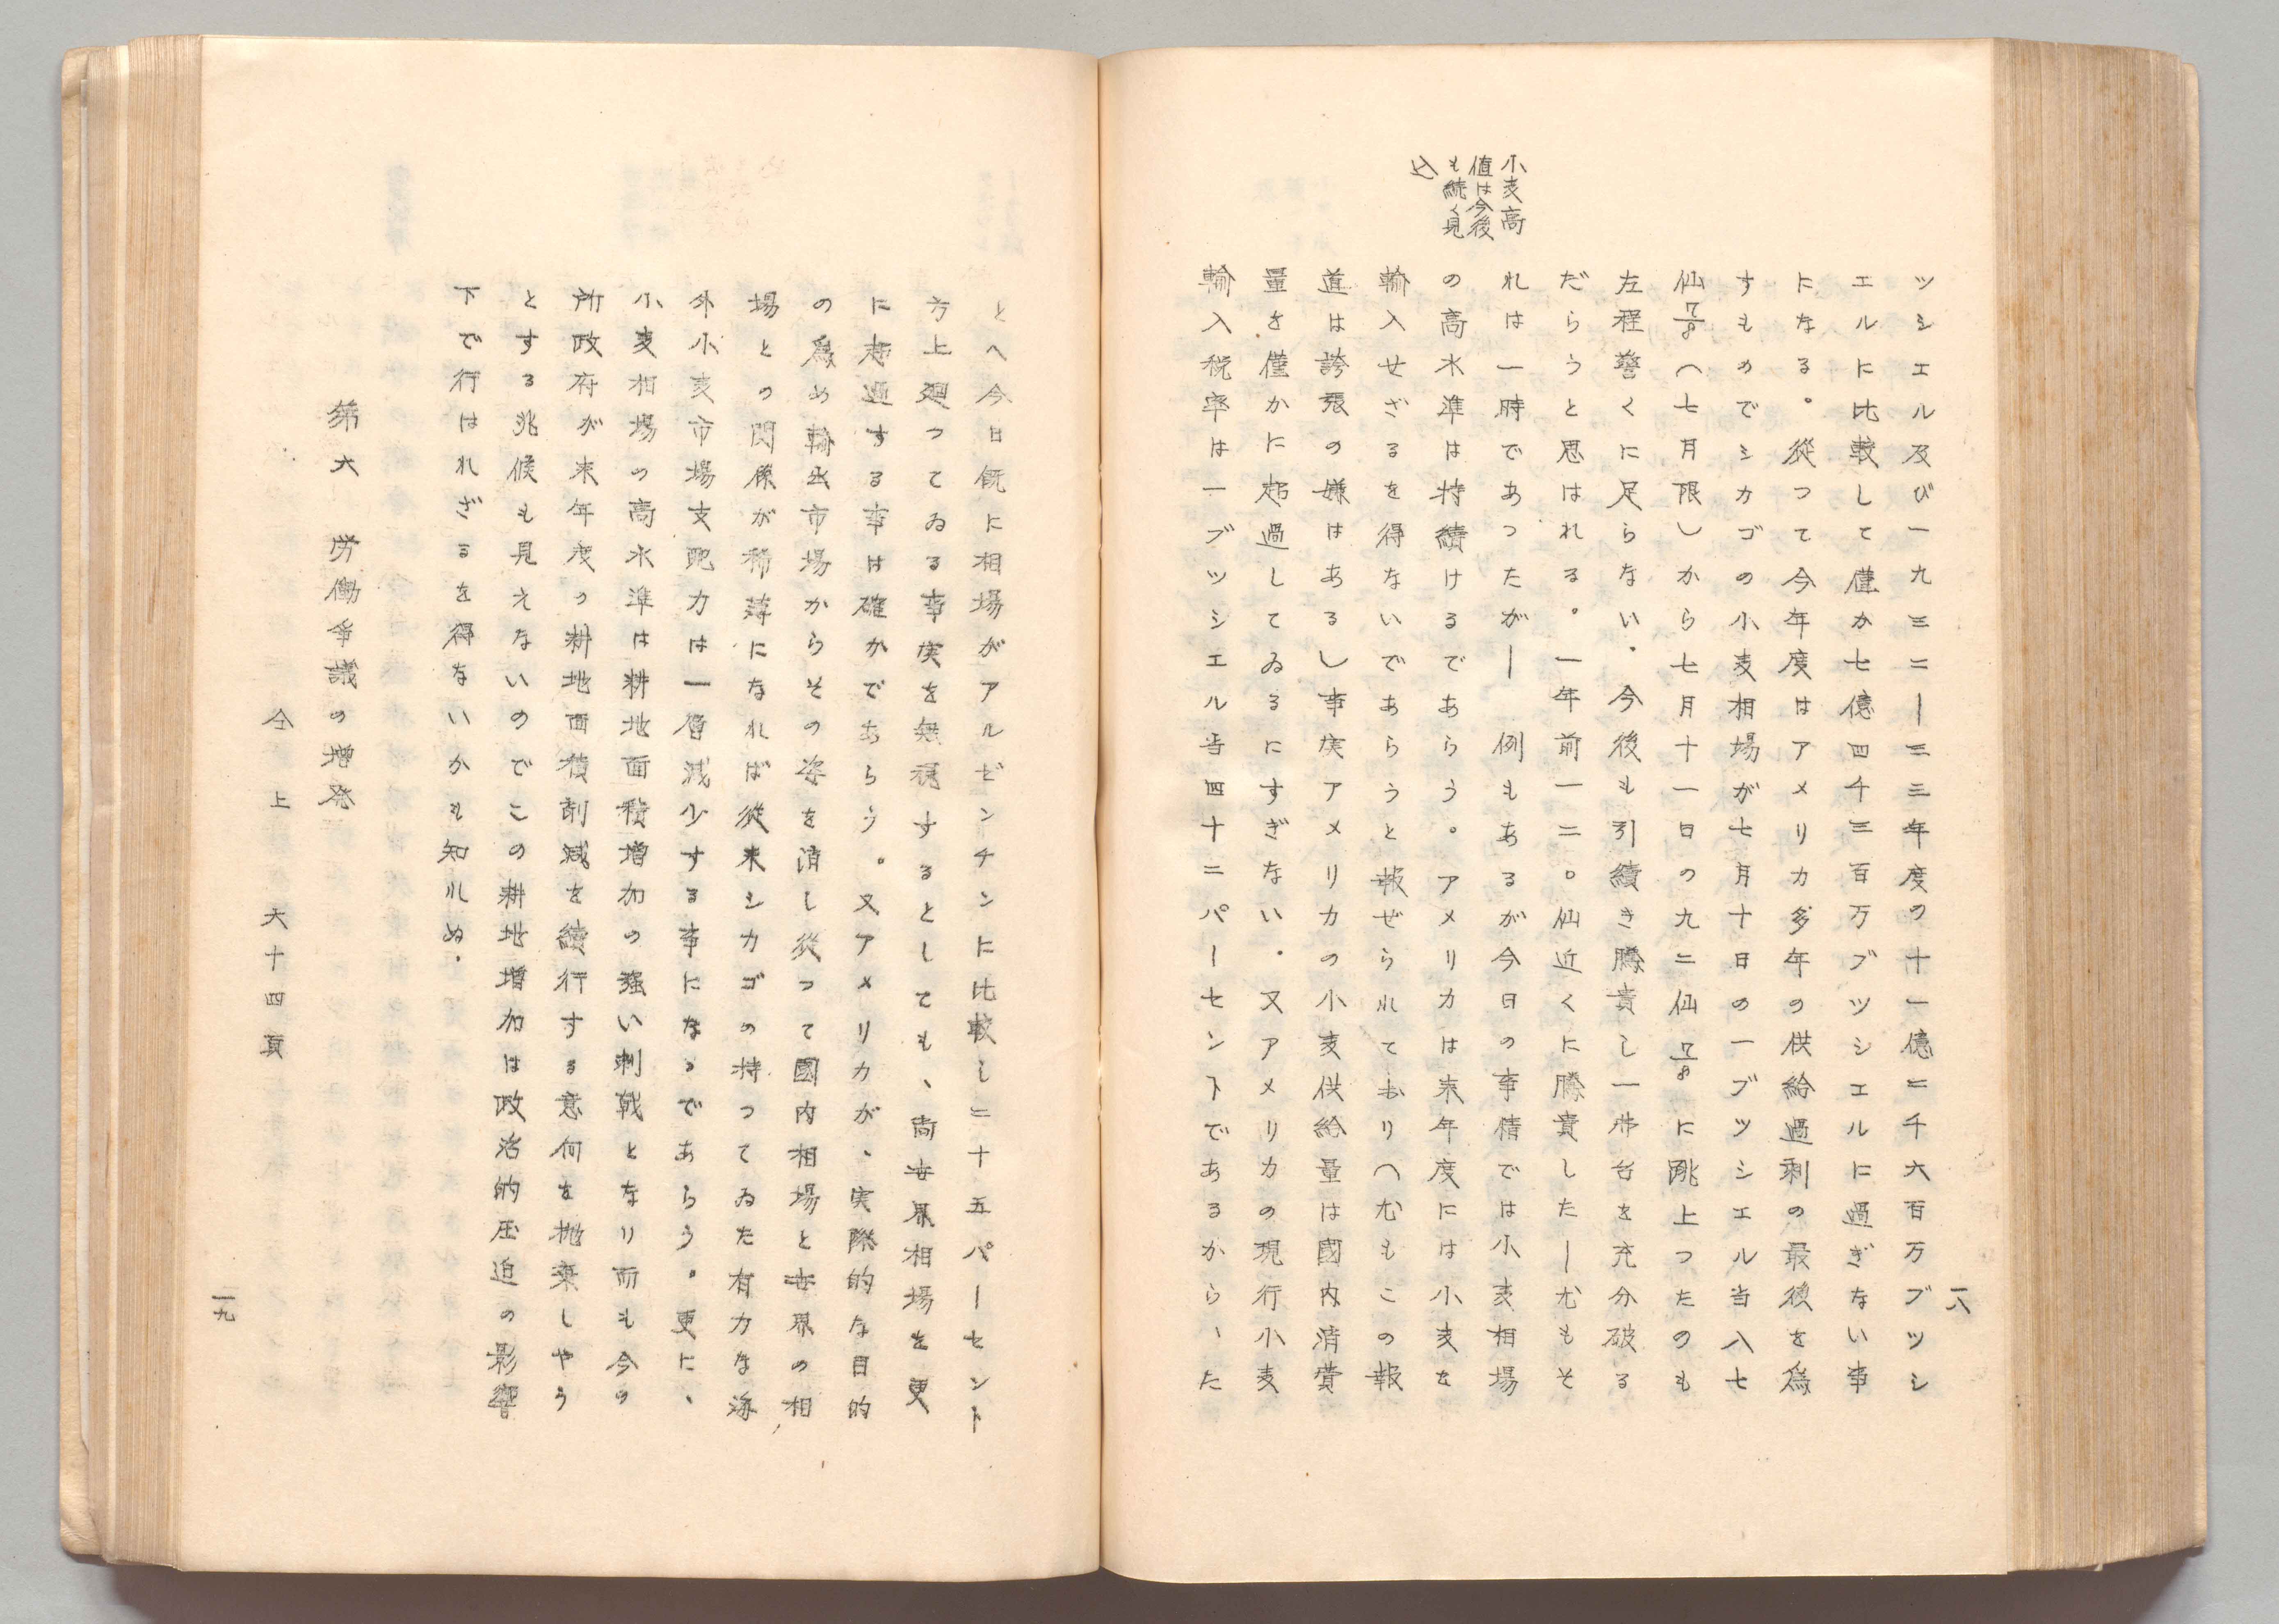 一八
小麦高
値は今後
も続く見
込
ツシエル及び一九三二―三三年度の十一億二千六百万ブツシ
エルに比較して僅か七億四千三百万ブツシエルに過ぎない事
になる。從つて今年度はアメリカ多年の供給過剰の最後を爲
すものでシカゴの小麦相場が七月十日の一ブツシエル当八七
仙⅞（七月限）から七月十一日の九二仙⅞に跳上つたのも
左程驚くに足らない。今後も引續き騰貴し一弗台を充分破る
だらうと思はれる。一年前一二〇仙近くに騰貴した―尤もそ
れは一時であつたが― 例もあるが今日の事情では小麦相場
の高水準は持續けるであらう。アメリカは来年度には小麦を
輸入せざるを得ないであらうと報ぜられており（尤もこの報
道は誇張の嫌はある）事実アメリカの小麦供給量は國内消費
量を僅かに超過してゐるにすぎない。又アメリカの現行小麦
輸入税率は一ブツシエル当四十二パーセントであるから、た
とへ今日既に相場がアルゼンチンに比較し二十五パーセント
方上廻つてゐる事実を無視するとしても、尚世界相場を更
に超過する事は確かであらう。又アメリカが、実際的な目的
の爲め輸出市場からその姿を消し從つて國内相場と世界の相
場との関係が稀薄になれば從来シカゴの持つてゐた有力な海
外小麦市場支配力は一層減少する事になるであらう。更に、
小麦相場の高水準は耕地面積増加の強い刺戟となり而も今の
所政府が来年度の耕地面積削減を續行する意何を抛棄しやう
とする兆候も見えないのでこの耕地増加は政治的圧迫の影響
下で行はれざるを得ないかも知れぬ。
第六 労働争議の増発
仝上 六十四頁
一九